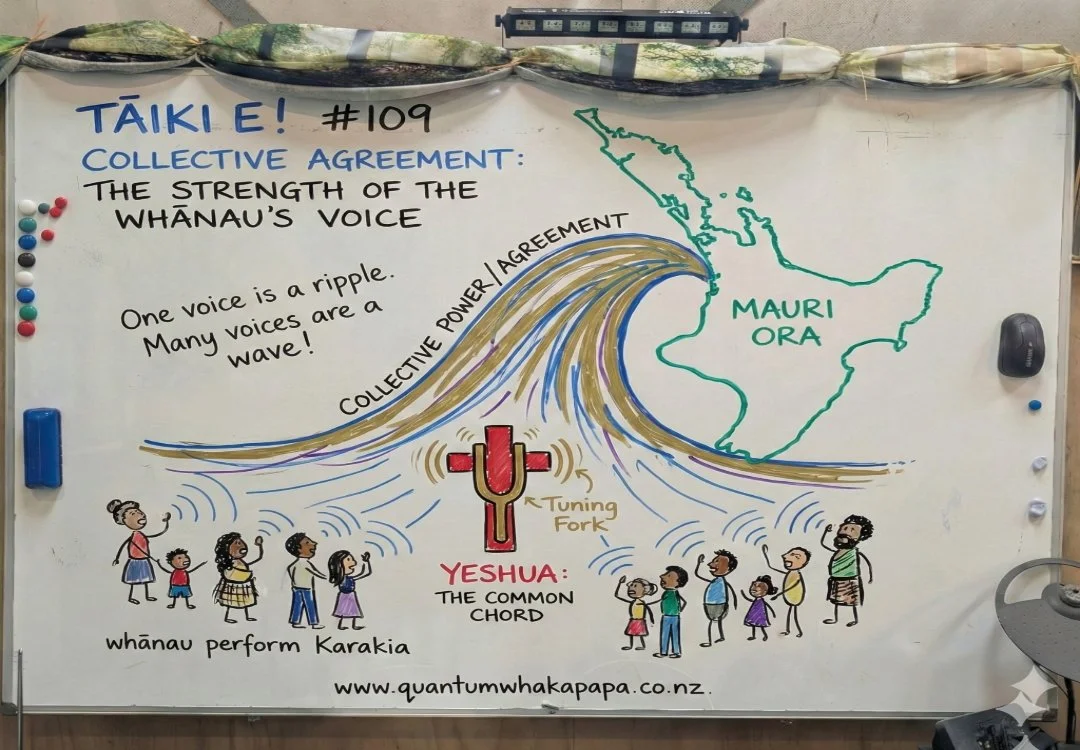 TĀIKI E! #109
COLLECTIVE AGREEMENT:
THE STRENGTH OF THE
WHĀNAU'S VOICE
One voice is a ripple.
Many voices are a
wave!
COLLECTIVE POWER/AGREEMENT
MAURI
ORA
Tuning
Fork
YESHUA:
THE COMMON
CHORD
whānau perform Karakia
www.quantumwhakapapa.co.nz.